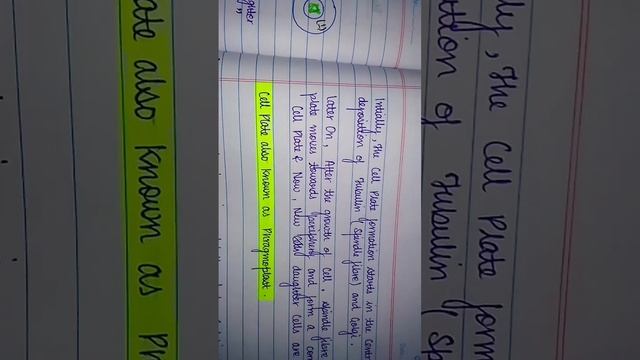 Initially, The Cell Plate formation starts in the Cent
deposition of Tubulin (spindle fibre) and Golgi.
Later On, After the growth of Cell, spindle fibre
plate moves towards periphery and form a cem
Cell Plate & Now, New daughter Cells are
Cell Plate also known as Phragmoplast.
ghter
ate also known as Ph
ly, The Cell Plate form
ition of Tubulin (Sp